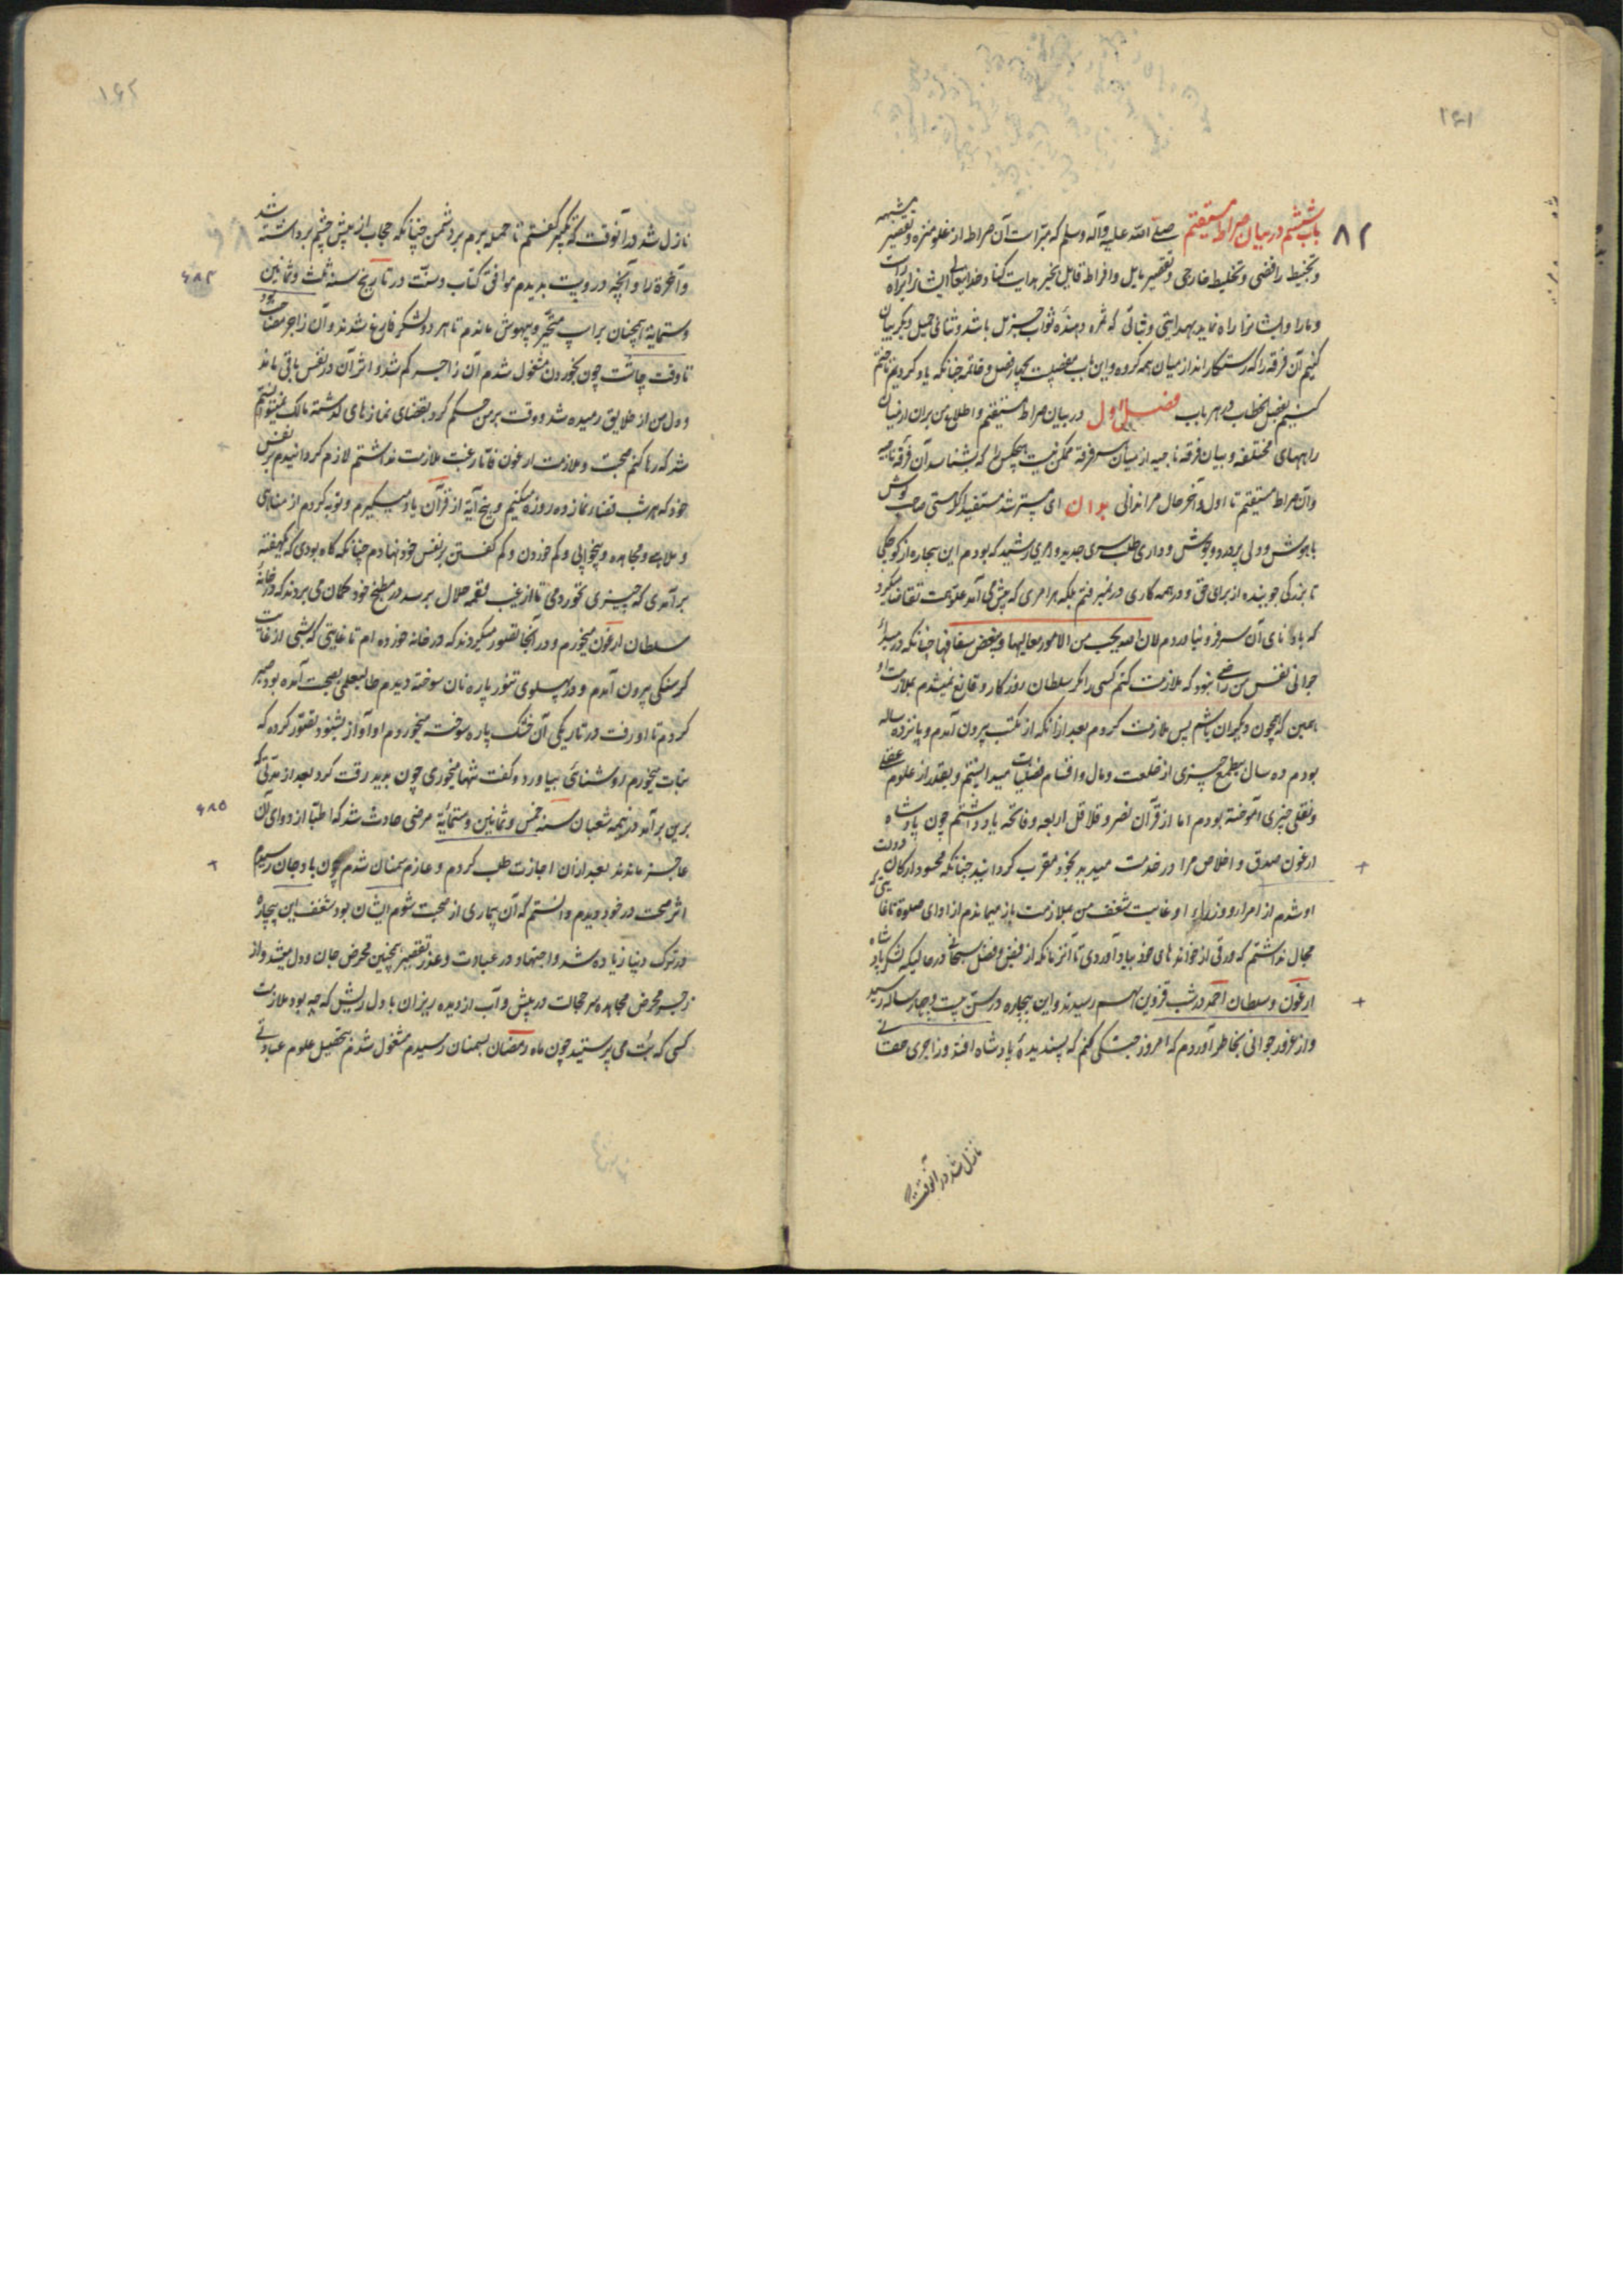 ۱۶۱
۸۲
باب ششم در بیان صراط مستقیم صلی الله علیه وآله وسلم که مبراست آن صراط از غلو منزه و تقصیر مشبهه
و تخبیط رافضی و تخلیط خارجی و تقصیر مایل و افراط قایل بخیر هدایت کناد خدایتعالی ایشانرا براه راست
و مارا و ایشانرا راه نماید بهدایتی و ثباتی که ثمره دهنده ثواب جزیل باشد و ثنائی جمیل و دیگر بیان
کنیم آن فرقه را که رستگارانند از میان همه گروه و این باب چهار فصل و خاتمه چنانکه یاد کردیم تا ختم
کنیم بفصل الخطاب در هر باب فصل اول در بیان صراط مستقیم و اطلاع من بران از میان
راههای مختلفه و بیان فرقه ناجیه از میان فرقه ممکن نیست هیچکس را که بشناسد آن فرقه ناجیه
و آن صراط مستقیم تا اول و آخر حال مرا ندانی بدان ای مسترشد مستفید اگر هستی صاحب گوش
باهوش و دلی پردرد و بجوش و داری طلب که بودم این بیچاره از کوچکی
تا بزرگی جوینده از برای حق و در همه کاری بلکه هر امری که پیش می آمد علو همت تقاضا میکرد
که آن سر فرو نیاوردم لان الله یحب من الامور معالیها و یبغض سفسافها چنانکه در مبدأ
جوانی نفس من راضی نبود که ملازمت کنم کسی را مگر سلطان روزگار و قانع نمیشدم بملازمت او
که همچون دیگران باشم پس ملازمت کردم بعد از آنکه از مکتب بیرون آمدم و پانزده ساله
بودم ده سال بیطمع چیزی از خلعت و مال و اقسام فضلیات میدانستم و بقدر از علوم عقلی
و نقلی چیزی آموخته بودم اما از قرآن نصر و قلاقل اربعه و فاتحه یاد داشتم چون پادشاه
ارغون صدق و اخلاص مرا در خدمت میدید بخود مقرب گردانید چنانکه محسود ارکان دولت
او شدم از امرا و وزراء او غایت شغف من بملازمت باز میماندم از ادای صلوة تا غایتی که
مجال نداشتم که ورقی از خوانده های خود بیاد آوردی تا آنزمانکه از فیض و فضل سبحانی در حالیکه لشکر پادشاه
ارغون و سلطان احمد در شب قزوین بهم رسیدند و این بیچاره در سن بیست و چهار سالگی رسید
و از غرور جوانی بخاطر آوردم که امروز جنگی کنم که پسندیده پادشاه افتد و زاجری حقانی
نازل شد در آنوقت
۱۶۲
نازل شد در آنوقت که تکبیر گفتم تا حمله برم بر دشمن چنانکه حجاب از پیش چشم برداشته شد
و آخرة را و آنچه در ویست بدیدم موافق کتاب و سنت در تاریخ سنه ثلث و ثمانین
۶۸۳
و ستمایة همچنان بر اسپ متحیر و بیهوش ماندم تا هر دو لشکر فارغ شدند و آن زاجر مصاحب بود
تا وقت چاشت چون بخوردن مشغول شدم آن زاجر کم شد و اثر آن در نفس باقی ماند
و دل من از خلایق رمیده شد و وقت بر من حکم کرد بقضای نمازهای گذشته مالک نمیتوانستم
شد که رها کنم صحبت و ملازمت ارغون فاتا رغبت ملازمت نداشتم لازم گردانیدم بر نفس
خود که هر شب قضاء نماز ده روزه میکنم و پنج آیة از قرآن یاد میگیرم و توبه کردم از مناهی
و ملاهی و مجاهده و بیخوابی و کم خوردن و کم گفتن بر نفس خود نهادم چنانکه گاه بودی که یکهفته
برآمدی که چیزی نخوردمی تا از غیب لقمه حلال برسد در مطبخ خود گمان می بردند که در خانه
سلطان ارغون میخورم و در آنجا تصور میکردند که در خانه خورده ام تا غایتی که شبی از غایت
گرسنگی بیرون آمدم و در پهلوی تنور پاره نان سوخته دیدم طالبعلمی بصحبت آمده بود صبر
کردم تا او رفت در تاریکی آن خشک پاره سوخته میخوردم او آواز بشنود تصور کرده که
نبات میخورم روشنائی بیاورد و گفت تنها میخوری چون بدید رقت کرد بعد از مدتی که
برین برآمد در نیمه شعبان سنه خمس و ثمانین و ستمائیة مرضی حادث شد که اطبا از دوای آن
۶۸۵
عاجز ماندند بعد از آن اجازت طلب کردم و عازم سمنان شدم چون باوجان رسیدم
اثر صحت در خود دیدم دانستم که آن بیماری از صحبت شوم ایشان بود شغف این بیچاره
در ترک دنیا زیاده شد و اجتهاد در عبادت و عذر تقصیر همچنین محرض جان و دل میشد و از
زجر محرض مجاهده هر حالت در پیش و آب از دیده ریزان با دل ریش که چه بود ملازمت
کسی که بت می پرستید چون ماه رمضان بسمنان رسیدم مشغول شدم بتحصیل علوم عباداتی